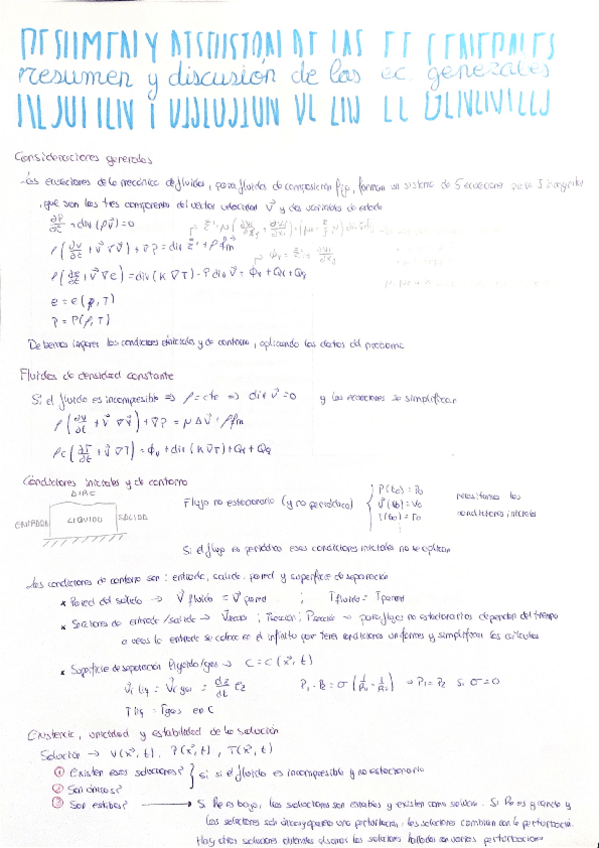 resumen y discusión de las ec. generales
Consideraciones generales
- Las ecuaciones de la mecánica de fluidos, para fluidos de composición fija, forman un sistema de 5 ecuaciones para 5 incognitas
, que son las tres componentes del vector velocidad v⃗ y dos variables de estado
∂ρ/∂t + div (ρv⃗) = 0
ρ(∂v⃗/∂t + v⃗ ∇v⃗) + ∇P = div τ⃗' + ρf⃗m
ρ(∂e/∂t + v⃗ ∇e) = div (K ∇T) - P div v⃗ + Φv + Qr + Qq
e = e(ρ, T)
P = P(ρ, T)
Debemos imponer las condiciones iniciales y de contorno, aplicando los datos del problema
Fluidos de densidad constante
Si el fluido es incompresible ⇒ ρ = cte ⇒ div v⃗ = 0 y las ecuaciones se simplifican
ρ(∂v⃗/∂t + v⃗ ∇v⃗) + ∇P = μ Δv⃗ + ρf⃗m
ρc(∂T/∂t + v⃗ ∇T) = Φv + div (K∇T) + Qr + Qq
Condiciones iniciales y de contorno
AIRE
ENTRADA LIQUIDO SALIDA
Flujo no estacionario (y no periódico) { P(t₀) = P₀
v⃗(t₀) = v₀
T(t₀) = T₀
necesitamos las
condiciones iniciales
Si el flujo es periódico esas condiciones iniciales no se aplican
- Las condiciones de contorno son: entrada, salida, pared y superficie de separación
* Pared del sólido → v⃗ fluido = v⃗ pared ; T fluido = T pared
* Secciones de entrada/salida → para flujos no estacionarios dependen del tiempo
a veces la entrada se coloca en el infinito que tiene condiciones uniformes y simplifican los cálculos
* Superficie de separación líquido/gas → C = C(x⃗, t)
v⃗ liq = v⃗ gas = dz/dt e⃗z P₁ - P₂ = σ(1/R₁ - 1/R₂) ⇒ P₁ = P₂ si σ = 0
T liq = T gas en C
Existencia, unicidad y estabilidad de la solución
Solución → v(x⃗, t), P(x⃗, t), T(x⃗, t)
① Existen esas soluciones? } si si el fluido es incompresible y no estacionario
② Son únicas?
③ Son estables? → Si Re es bajo, las soluciones son estables y existen como solución. Si Re es grande y
las soluciones son únicas y aparece una perturbación, las soluciones cambian con la perturbación.
Hay otras soluciones